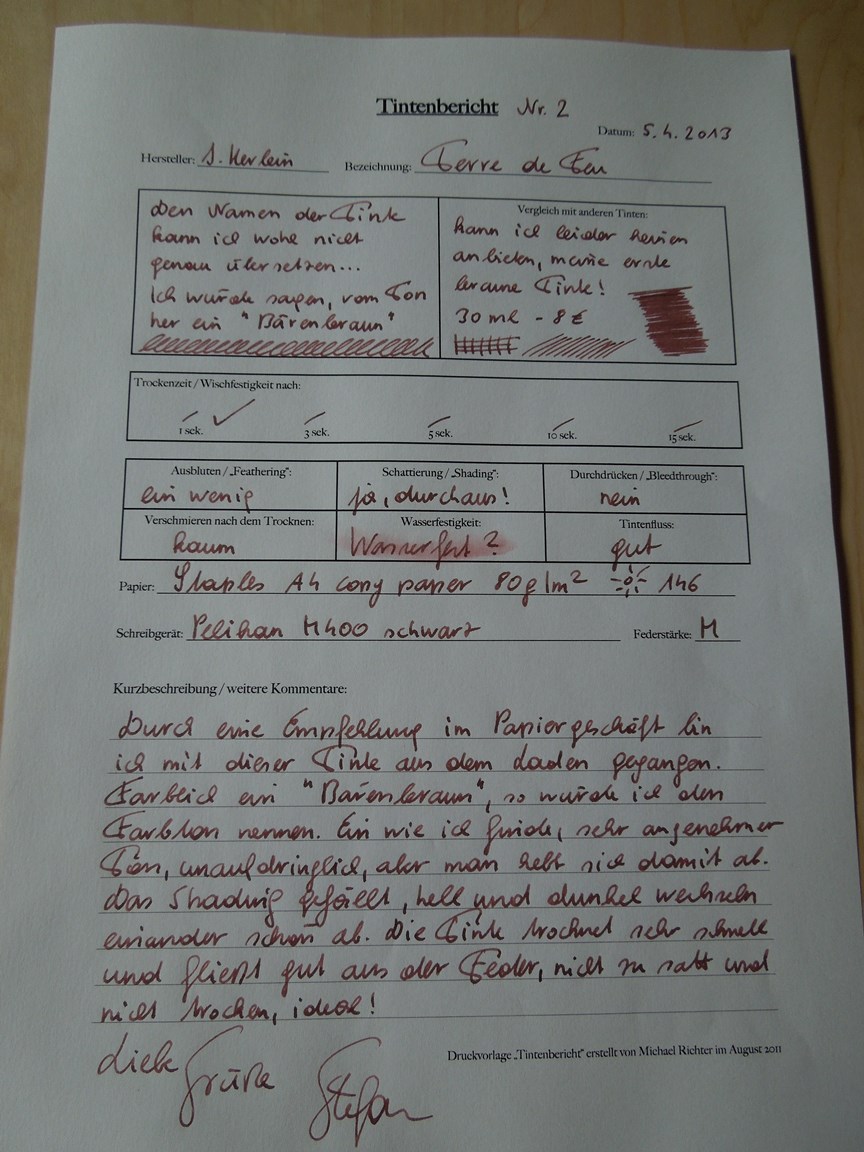 Tintenbericht Nr. 2
Datum: 5.4.2013
Hersteller: J. Herbin Bezeichnung: Terre de Feu
Den Namen der Tinte
kann ich wohl nicht
genau übersetzen...
Ich würde sagen, vom Ton
her ein "Bärenbraun"
Vergleich mit anderen Tinten:
kann ich leider keinen
anbieten, meine erste
braune Tinte!
30 ml - 8 €
Trockenzeit / Wischfestigkeit nach:
1 sek. 3 sek. 5 sek. 10 sek. 15 sek.
Ausbluten / „Feathering":
ein wenig
Schattierung / „Shading":
ja, durchaus!
Durchdrücken / „Bleedthrough":
nein
Verschmieren nach dem Trocknen:
kaum
Wasserfestigkeit:
Wasserfest?
Tintenfluss:
gut
Papier: Staples A4 copy paper 80g/m² 146
Schreibgerät: Pelikan M400 schwarz Federstärke: M
Kurzbeschreibung / weitere Kommentare:
Durch eine Empfehlung im Papiergeschäft bin
ich mit dieser Tinte aus dem Laden gegangen.
Farblich ein "Bärenbraun", so würde ich den
Farbton nennen. Ein wie ich finde, sehr angenehmer
Ton, unaufdringlich, aber man hebt sich damit ab.
Das Shading gefällt, hell und dunkel wechseln
einander schön ab. Die Tinte trocknet sehr schnell
und fließt gut aus der Feder, nicht zu satt und
nicht trocken, ideal!
Liebe Grüße Stefan
Druckvorlage „Tintenbericht" erstellt von Michael Richter im August 2011